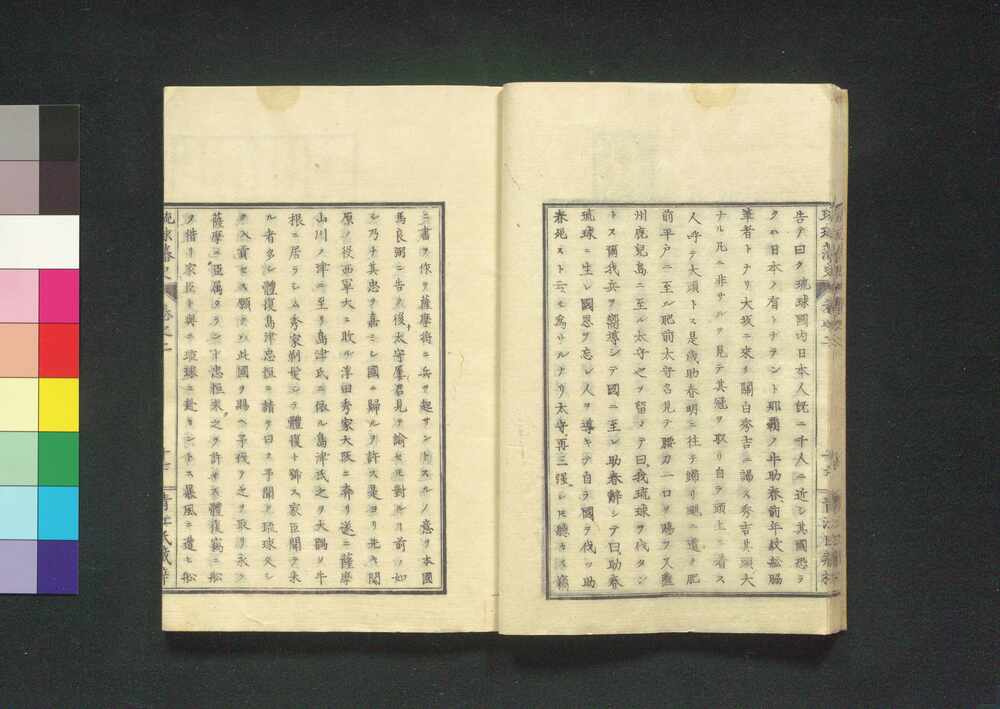 告テ曰ク琉球國内日本人既ニ千人ニ近シ其國恐ラ
クハ日本ノ有トナラント那覇ノ牛助春前年紋船脇
筆者トナリ大坂ニ來リ關白秀吉ニ謁ス秀吉其頭大
ナル凡ニ非サルヲ見テ其冠ヲ取リ自ラ頭上ニ着ス
人呼テ大頭トス是歳助春明ニ往テ歸リ颶ニ遭ヒ肥
前平戸ニ至ル肥前太守召見テ腰刀一口ヲ賜フ又薩
州鹿兒島ニ至ル太守之ヲ留メテ曰我琉球ヲ伐タン
トス爾我兵ヲ嚮導シテ國ニ至レ助春辭シテ曰助春
琉球ニ生レ國恩ヲ忘レ人ヲ導キテ自ラ國ヲ伐ツ助
春死ストモ為サルナリ太守再三強レ𪜈聽カス竊
ニ書ヲ作リ薩摩將ニ兵ヲ起サントスルノ意ヲ本國
馬良弼ニ告ク後太守屢召見シ諭セ𪜈對ルヿ前ノ如
シ乃チ其忠ヲ嘉ミシ國ニ歸ルヲ許ス是ヨリ先キ関
原ノ役西軍大ニ敗ル浮田秀家大阪ニ奔リ遂ニ薩摩
山川ノ津ニ至リ島津氏ニ依ル島津氏之ヲ大隅ノ牛
根ニ居ラシム秀家剃髪シテ體復ト號ス家臣聞テ來
ル者多シ體復島津忠恒ニ請テ曰ク予聞ク琉球久シ
ク入貢セス願クハ此國ヲ賜ヘ予伐テ之ヲ取リ永ク
薩摩ニ臣属タラント忠恒未之ヲ許サス體復竊ニ舩
ヲ借リ家臣ト與ニ琉球ニ赴カントス暴風ニ遭ヒ舩
琉球藩史 卷之二 十七 青江氏藏梓